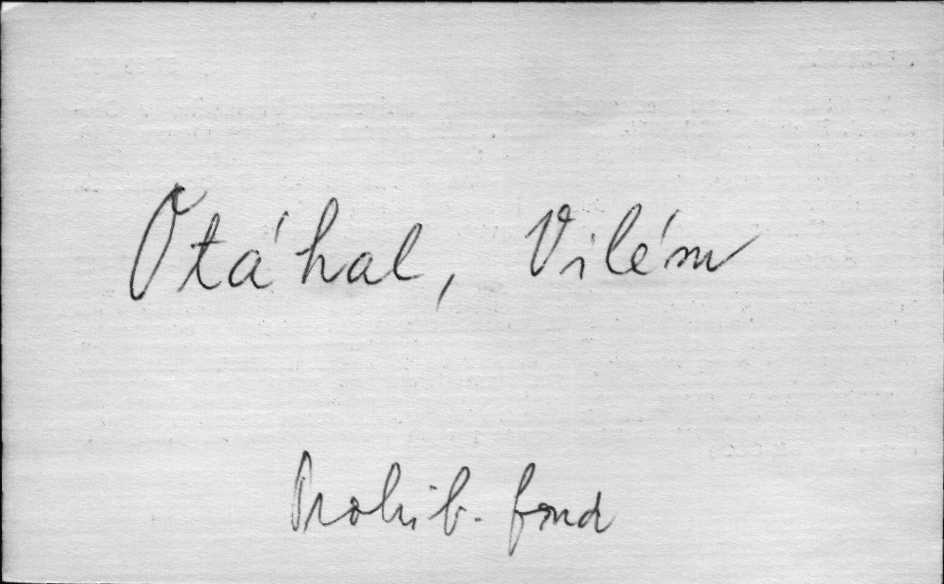 Otáhal, Vilém
Prohib. fond